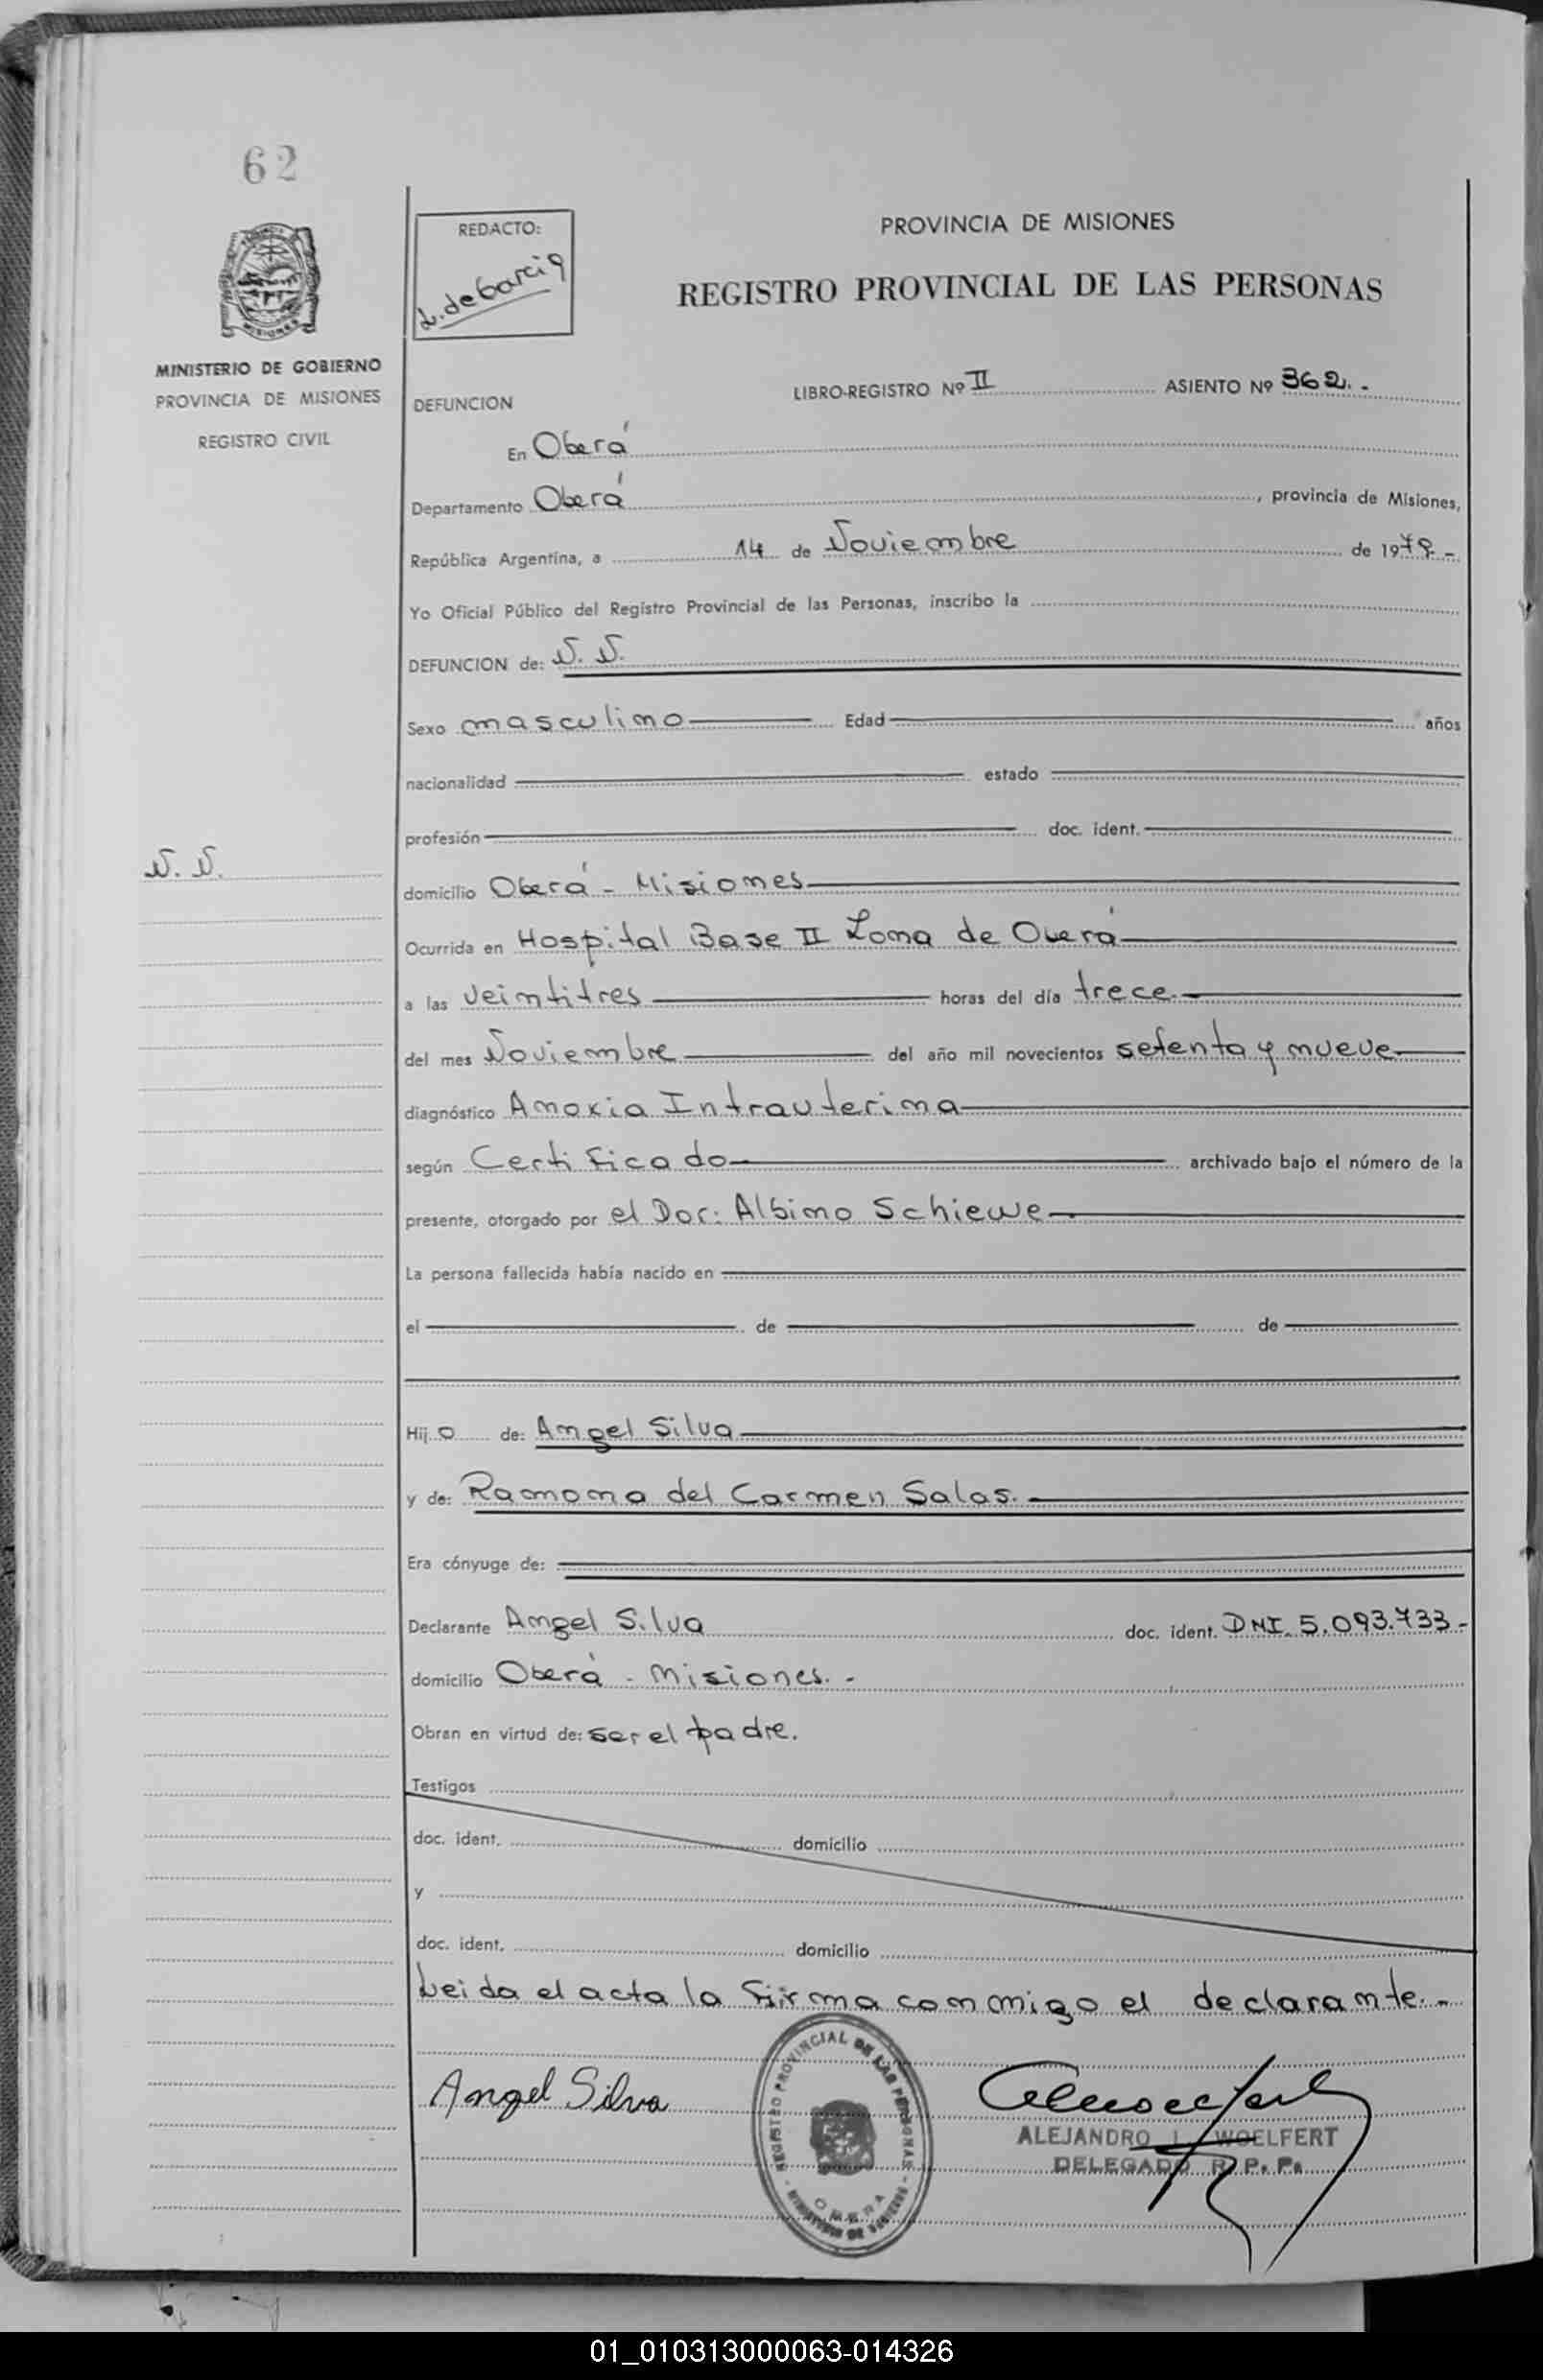 62
REDACTO:
L. de Garcia
PROVINCIA DE MISIONES
REGISTRO PROVINCIAL DE LAS PERSONAS
MISIONES
MINISTERIO DE GOBIERNO
PROVINCIA DE MISIONES
REGISTRO CIVIL
LIBRO-REGISTRO Nº II ASIENTO Nº 362.-
DEFUNCION
En Oberá
Departamento Oberá, provincia de Misiones,
República Argentina, a 14 de Noviembre de 1979.-
Yo Oficial Público del Registro Provincial de las Personas, inscribo la
DEFUNCION de: N. N.
Sexo masculino Edad años
nacionalidad estado
profesión doc. ident.
N. N.
domicilio Oberá - Misiones
Ocurrida en Hospital Base II Loma de Oberá
a las veintitres horas del día trece.
del mes Noviembre del año mil novecientos setenta y nueve
diagnóstico Anoxia Intrauterina
según Certificado archivado bajo el número de la
presente, otorgado por el Doc: Albino Schiewe
La persona fallecida había nacido en
el de de
Hijo de: Angel Silva
y de: Ramona del Carmen Salas.
Era cónyuge de:
Declarante Angel Silva doc. ident. DNI. 5.093.733-
domicilio Oberá - Misiones. -
Obran en virtud de: ser el padre.
Testigos
doc. ident. domicilio
y
doc. ident. domicilio
Leida el acta la firma conmigo el declarante.-
Angel Silva
REGISTRO PROVINCIAL DE LAS PERSONAS
OBERA
ALEJANDRO L. WOELFERT
DELEGADO R. P. P.
01_010313000063-014326